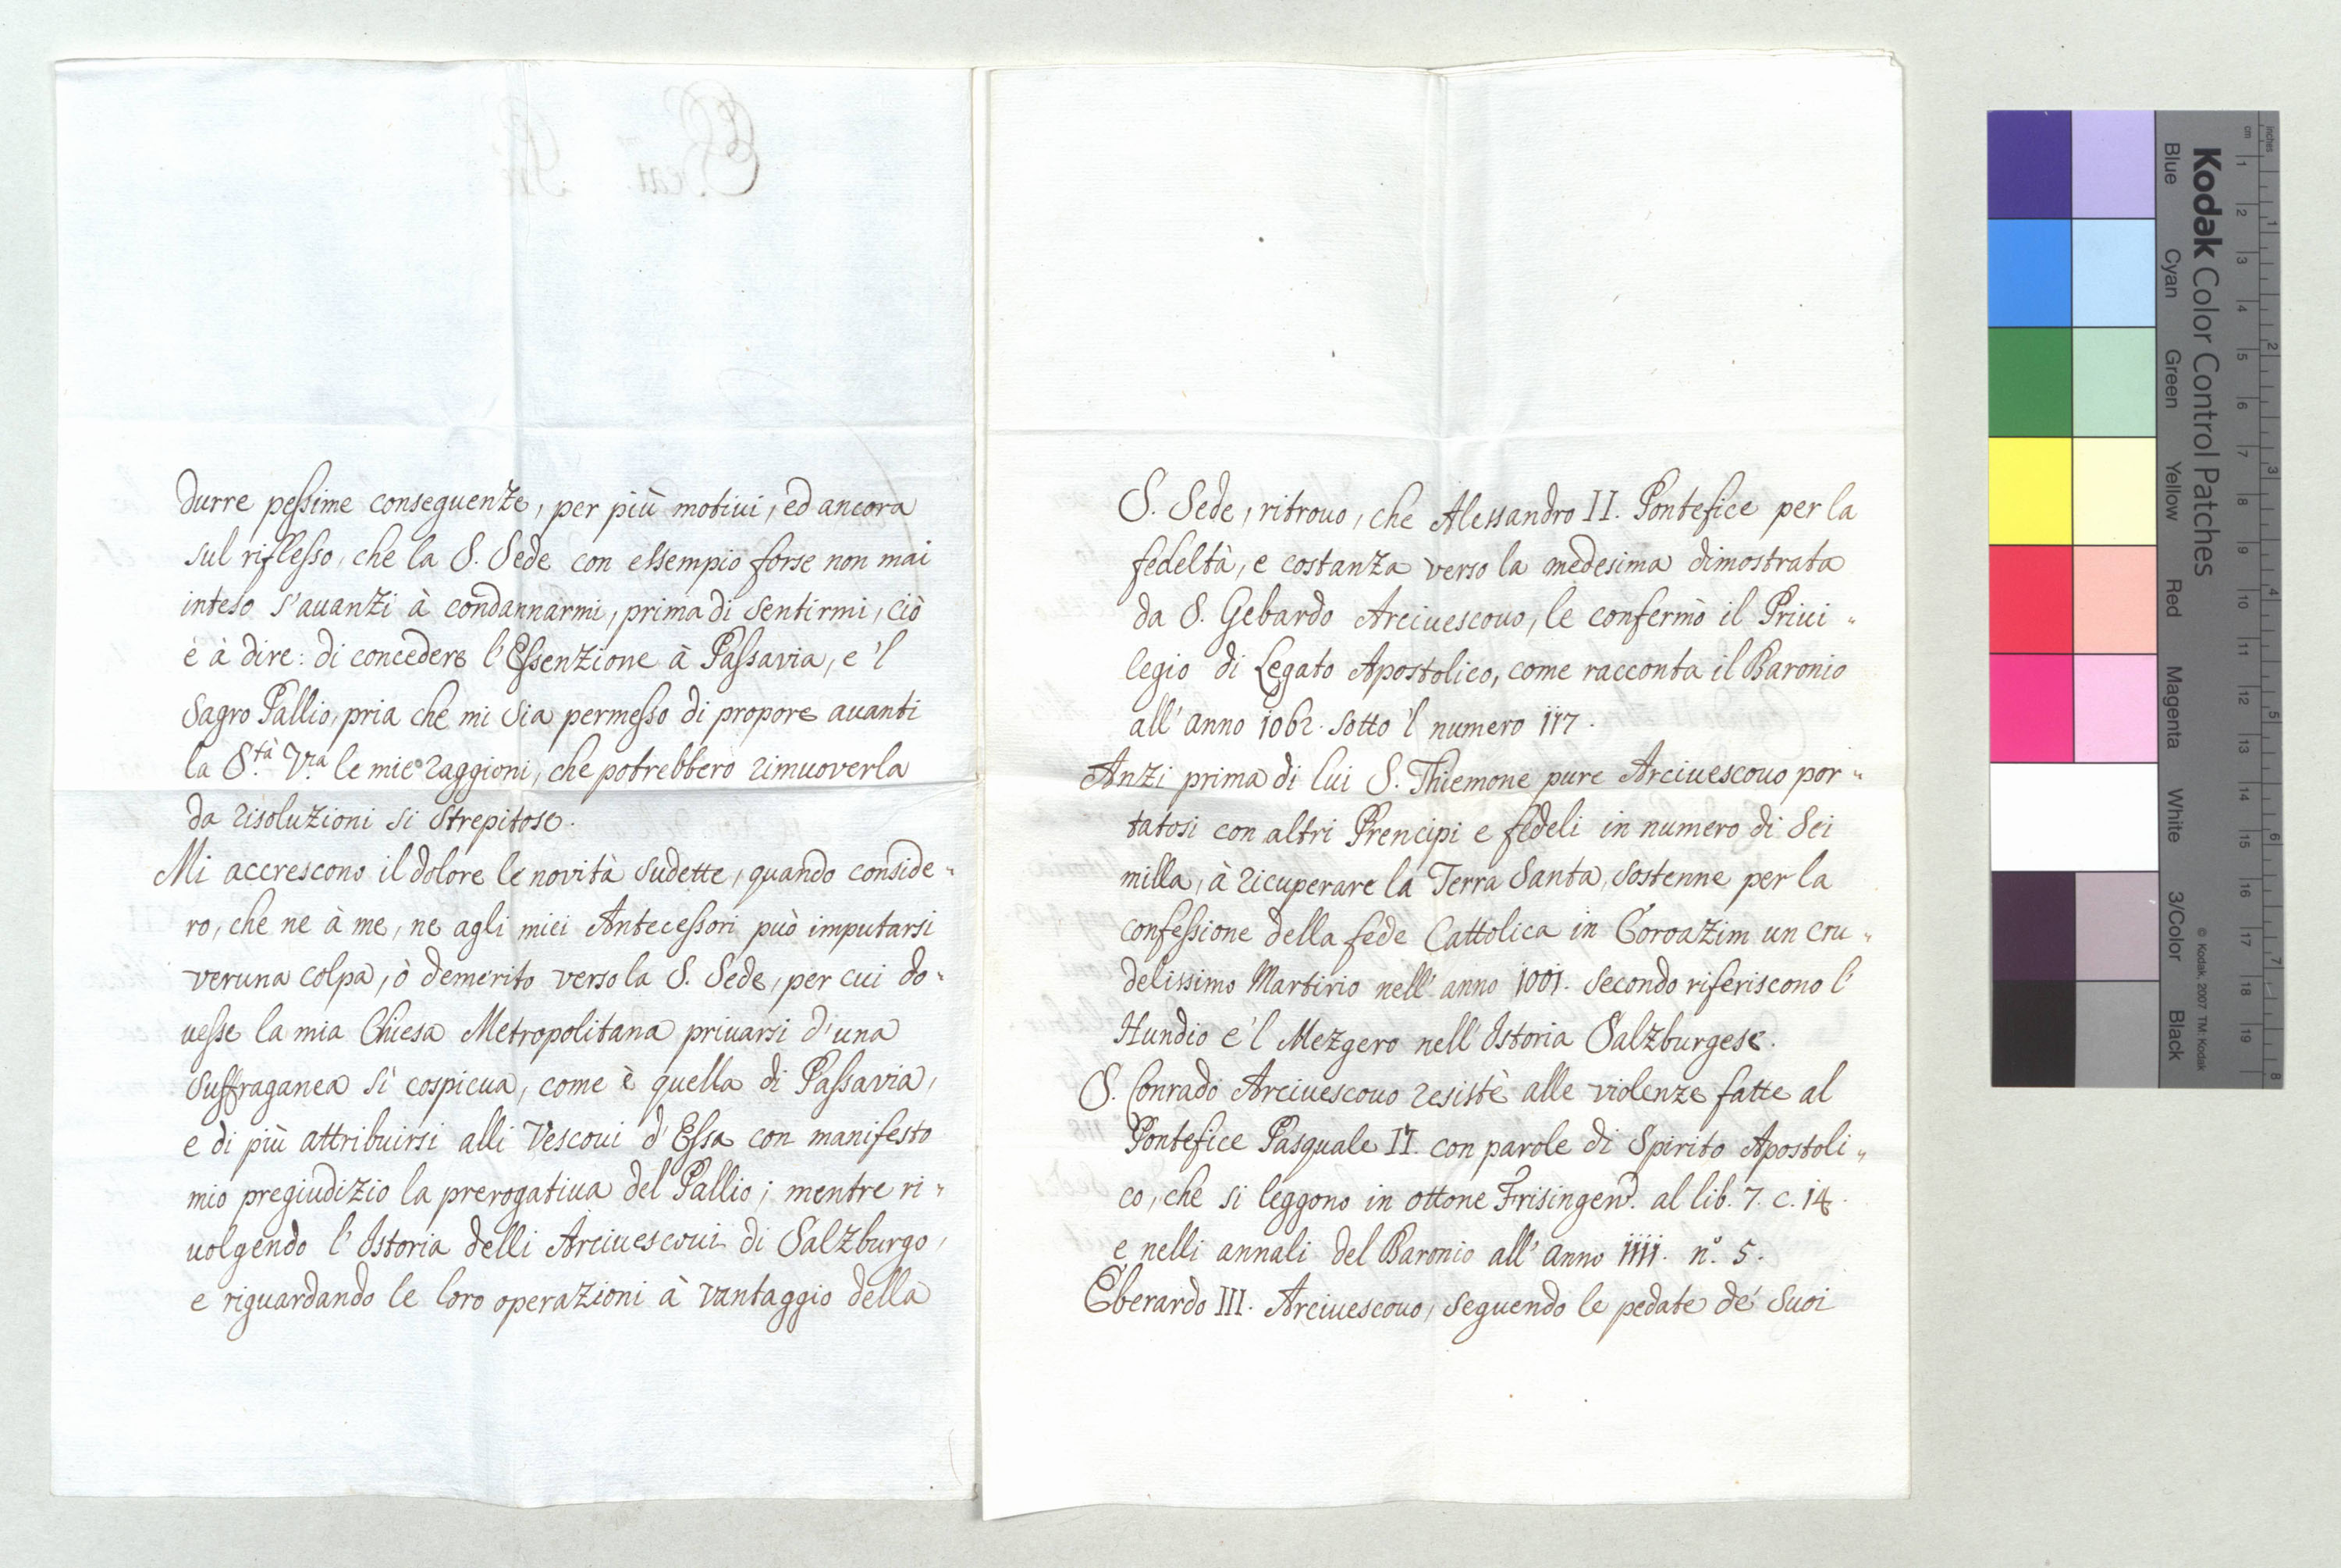 durre pessime conseguenze, per più motiui, ed ancora
sul riflesso, che la S. Sede con essempio forse non mai
inteso s'auanzi à condannarmi, prima di sentirmi, ciò
è à dire: di concedere l'Essenzione à Passavia, e 'l
Sagro Pallio, pria che mi sia permesso di propore auanti
la S.tà V.ra le mie raggioni, che potrebbero rimuoverla
da risoluzioni si strepitose.
Mi accrescono il dolore le novità sudette, quando conside-
ro, che ne à me, ne agli miei Antecessori può imputarsi
veruna colpa, ò demerito verso la S. Sede, per cui do-
uesse la mia Chiesa Metropolitana priuarsi d'una
Suffraganea sì cospicua, come è quella di Passavia,
e di più attribuirsi alli Vescoui d'Essa con manifesto
mio pregiudizio la prerogatiua del Pallio; mentre ri-
uolgendo l'Istoria delli Arciuescoui di Salzburgo,
e riguardando le loro operazioni à vantaggio della
S. Sede, ritrouo, che Alessandro II. Pontefice per la
fedeltà, e costanza verso la medesima dimostrata
da S. Gebardo Arciuescouo, le confermò il Priui-
legio di Legato Apostolico, come racconta il Baronio
all'anno 1062. sotto 'l numero 117.
Anzi prima di lui S. Thiemone pure Arciuescouo por-
tatosi con altri Prencipi e fedeli in numero di Sei
milla, à ricuperare la Terra Santa, sostenne per la
confessione della fede Cattolica in Coroazim un cru-
delissimo Martirio nell'anno 1001. secondo riferiscono l'
Hundio e 'l Mezgero nell'Istoria Salzburgese.
S. Conrado Arciuescouo resistè alle violenze fatte al
Pontefice Pasquale II. con parole di Spirito Apostoli-
co, che si leggono in Ottone Frisingen. al lib. 7. c. 14.
e nelli annali del Baronio all'anno 1111. n.º 5.
Eberardo III. Arciuescouo, seguendo le pedate de' suoi
Kodak Color Control Patches
Blue Cyan Green Yellow Red Magenta White 3/Color Black
© Kodak, 2007 TM: Kodak
inches 1 2 3 4 5 6 7 8
cm 1 2 3 4 5 6 7 8 9 10 11 12 13 14 15 16 17 18 19